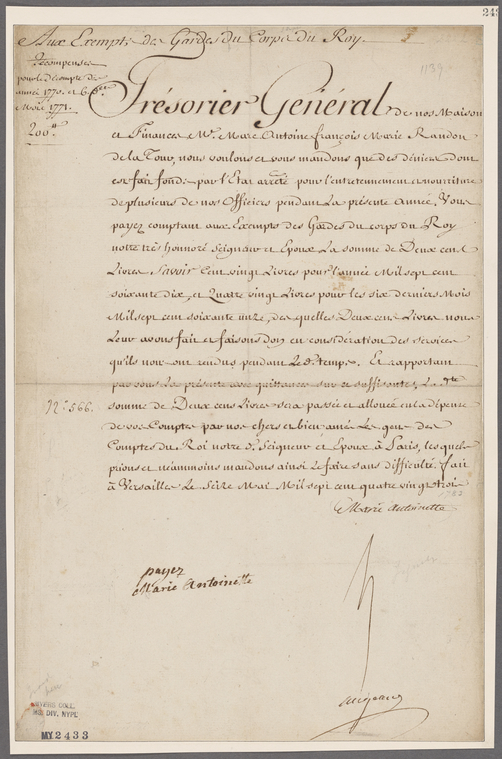 Aux Exempts des Gardes du Corps du Roy.
Récompenses
pour le décompte des
année 1770. et 6. d.ers
Mois 1771.
200.tt
1139
Trésorier Général de nos Maison
et Finances M.e Marc Antoine françois Marie Randon
de la Tour, nous voulons et vous mandons que des deniers dont
est fait fond: par l'Etat arrêté pour l'entretenement et nourriture
de plusieurs de nos Officiers pendant la présente année, Vous
payez comptant aux Exempts des Gardes du corps du Roy
notre très honoré Seigneur et Epoux La somme de Deux cent
Livres Savoir Cent vingt Livres pour l'année Mil sept cent
soixante dix, et Quatre vingt Livres pour les six derniers Mois
Mil sept cent soixante onze, des quelles Deux cens Livres nous
Leur avons fait et faisons don en consideration des services
qu'ils nous ont rendus pendant Le d. temps. Et rapportant
par vous La présente avec quittances sur ce suffisantes, La d.te
N.o 566. somme de Deux cens Livres sera passée et allouée en la dépense
de vos Comptes par nos chers et bien amés Les gens des
Comptes du Roi notre d. Seigneur et Epoux à Paris, les quels
prions et néanmoins mandons ainsi le faire sans difficulté. fait
à Versailles Le Seize Mai Mil sept cent quatre vingt trois
1783
Marie Antoinette
payez
Marie Antoinette
Augeard
MYERS COLL.
MSS DIV, NYPL
MY2433